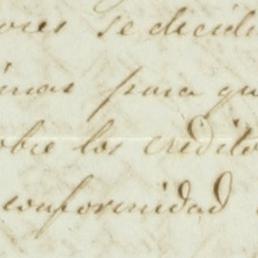 ores se decidi
imas para qu
obre los credito
conformidad